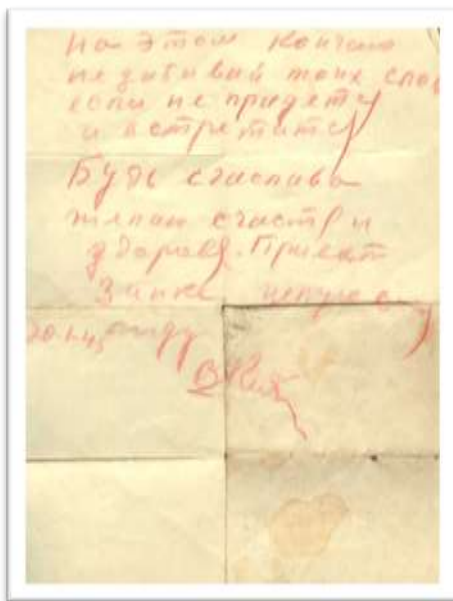 На этом кончаю
не забывай моих слов
если не придется
и встретится
Будь счаслива
желаю счастья и
здоровя. Привет
Зинке целую
20.1.45